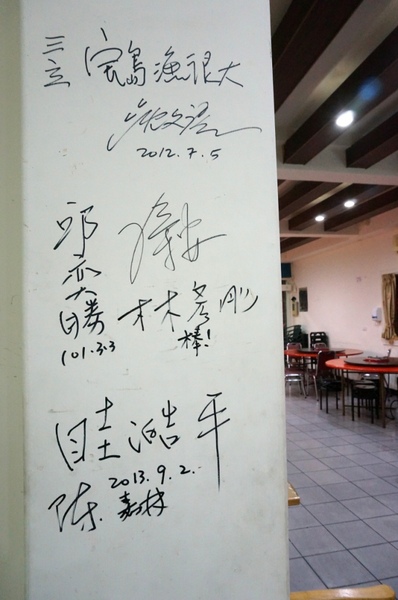 三立 寶島漁很大
2012.7.5
邱奕勝
101.3.3
林彥剛
棒!
眭澔平
2013.9.2.
陳嘉林